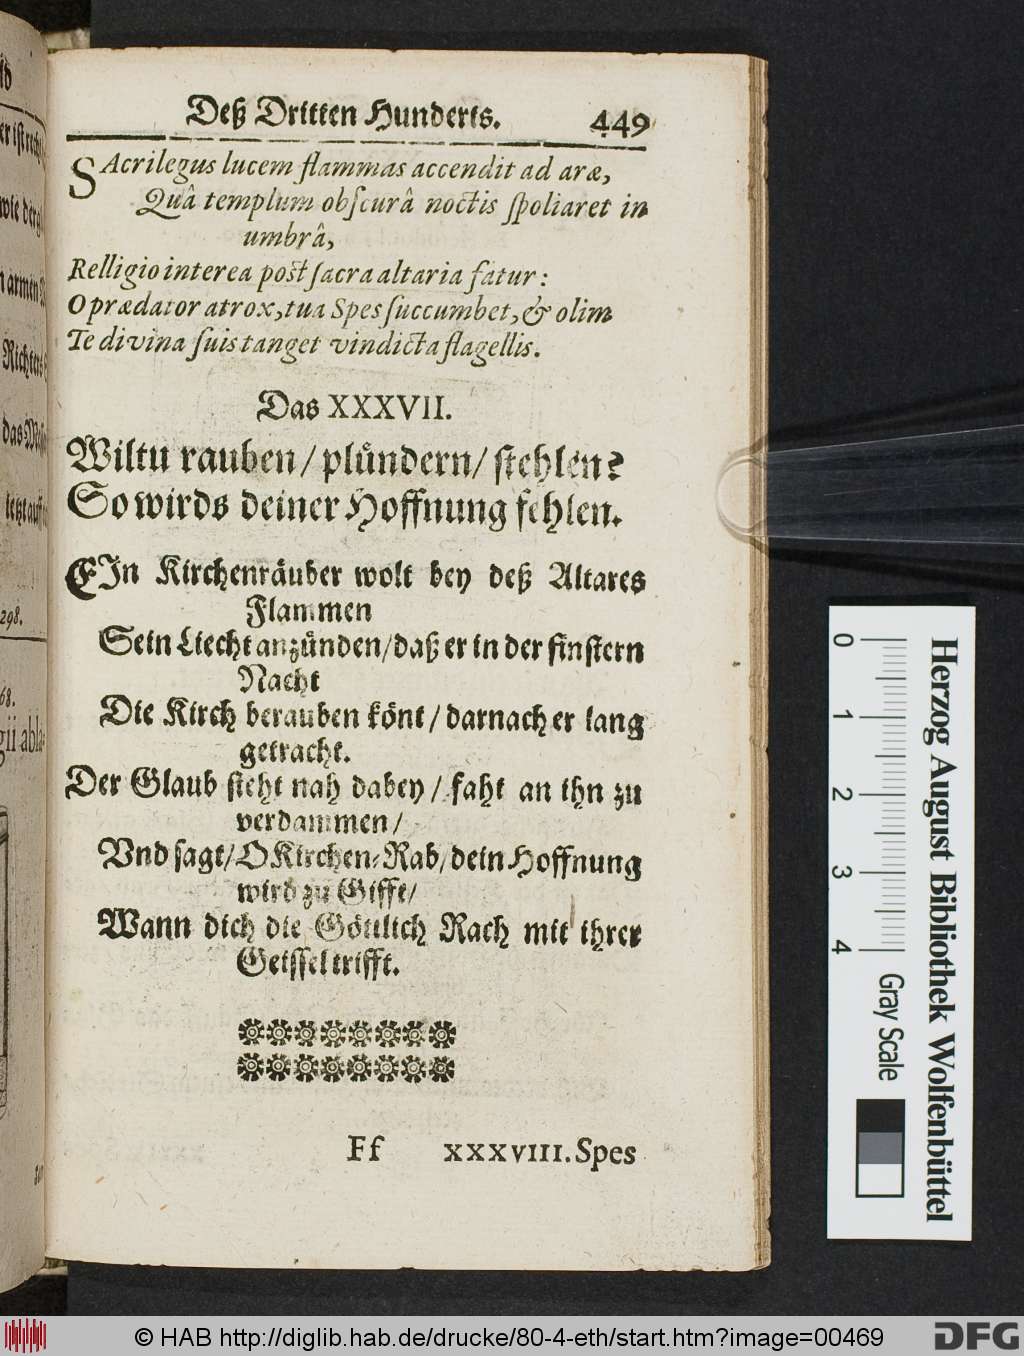 Deß Dritten Hunderts. 449
SAcrilegus lucem flammas accendit ad aræ,
Quâ templum obſcurâ noctis ſpoliaret in
umbrâ,
Relligio interea poſt ſacra altaria fatur:
O prædator atrox, tua Spes ſuccumbet, & olim
Te divina ſuis tanget vindicta flagellis.
Das XXXVII.
Wiltu rauben/ plündern/ ſtehlen?
So wirds deiner Hoffnung fehlen.
EIn Kirchenräuber wolt bey deß Altares
Flammen
Sein Liecht anzünden/ daß er in der finſtern
Nacht
Die Kirch berauben könt/ darnach er lang
getracht.
Der Glaub ſteht nah dabey/ faht an ihn zu
verdammen/
Vnd ſagt/ O Kirchen-Rab/ dein Hoffnung
wird zu Gifft/
Wann dich die Göttlich Rach mit ihrer
Geiſſel trifft.
Ff XXXVIII. Spes
298.
68.
0 1 2 3 4
Gray Scale
Herzog August Bibliothek Wolfenbüttel
© HAB http://diglib.hab.de/drucke/80-4-eth/start.htm?image=00469
DFG